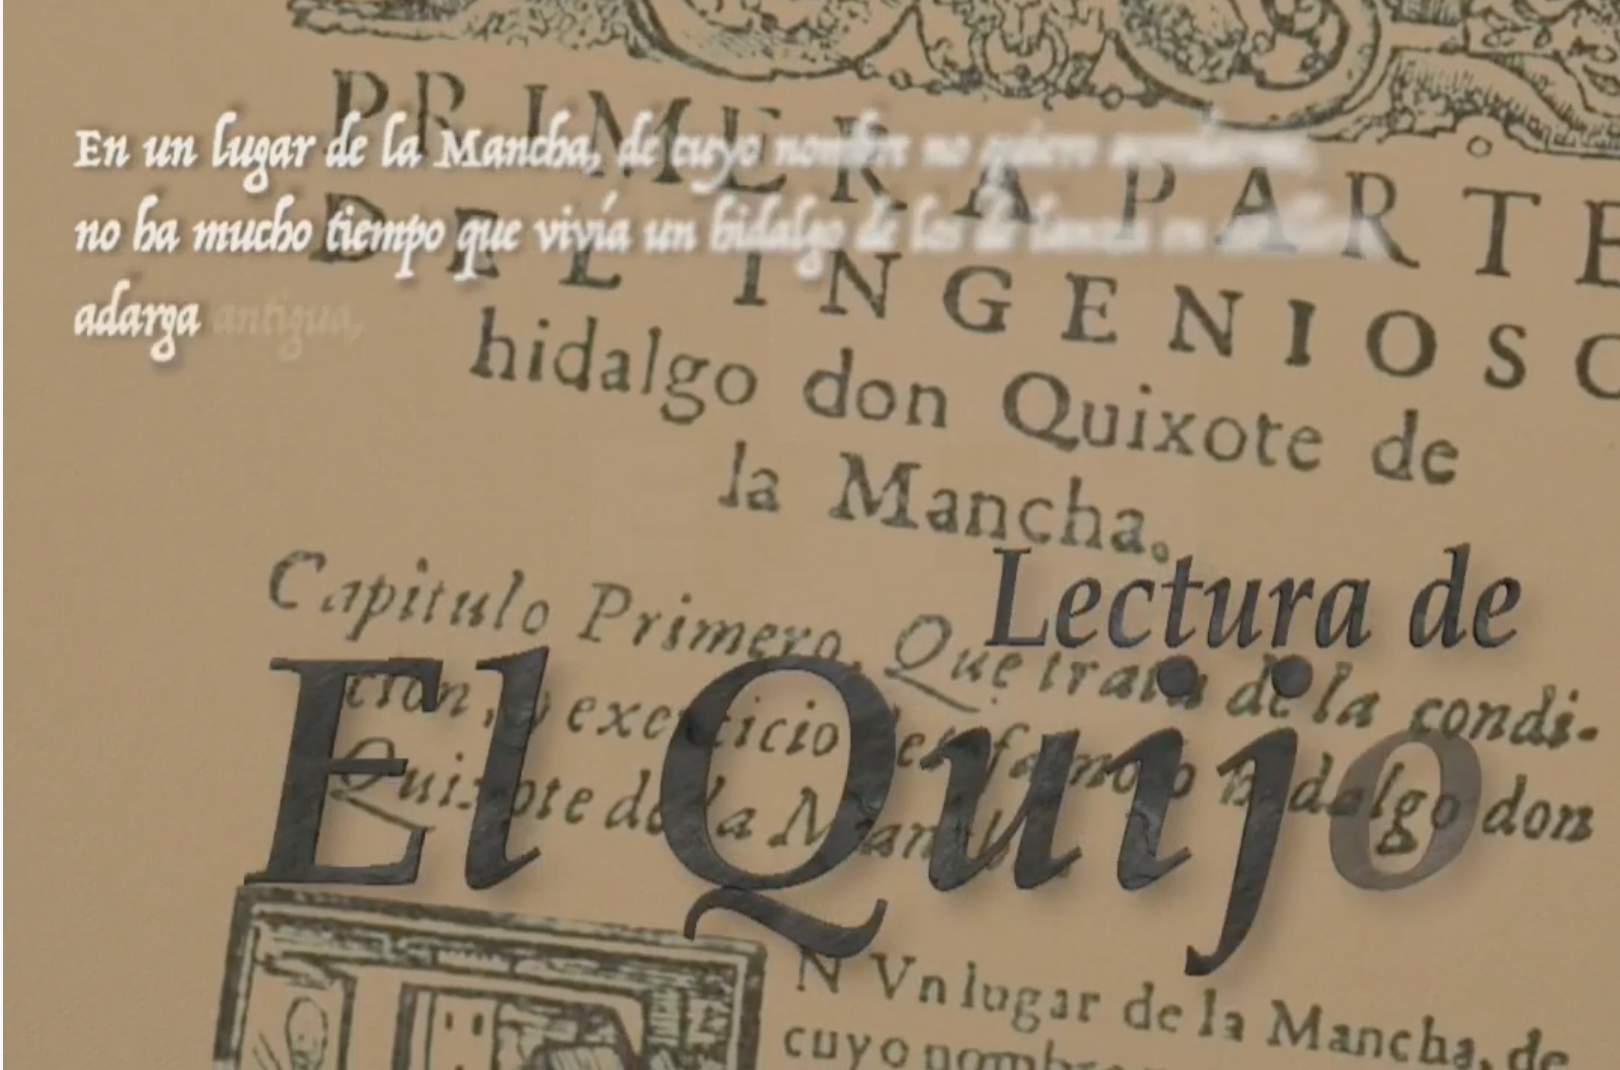 PRIMERA PARTE
DEL INGENIOSO
hidalgo don Quixote de
la Mancha.
En un lugar de la Mancha, de cuyo nombre no quiero acordarme,
no ha mucho tiempo que vivía un hidalgo de los de lanza en astillero,
adarga antigua,
Lectura de
El Quijo
Capitulo Primero, Que trata de la condi-
cion, y exercicio del famoso hidalgo don
Quixote de la Mancha.
N Vn lugar de la Mancha, de
cuyo nombre